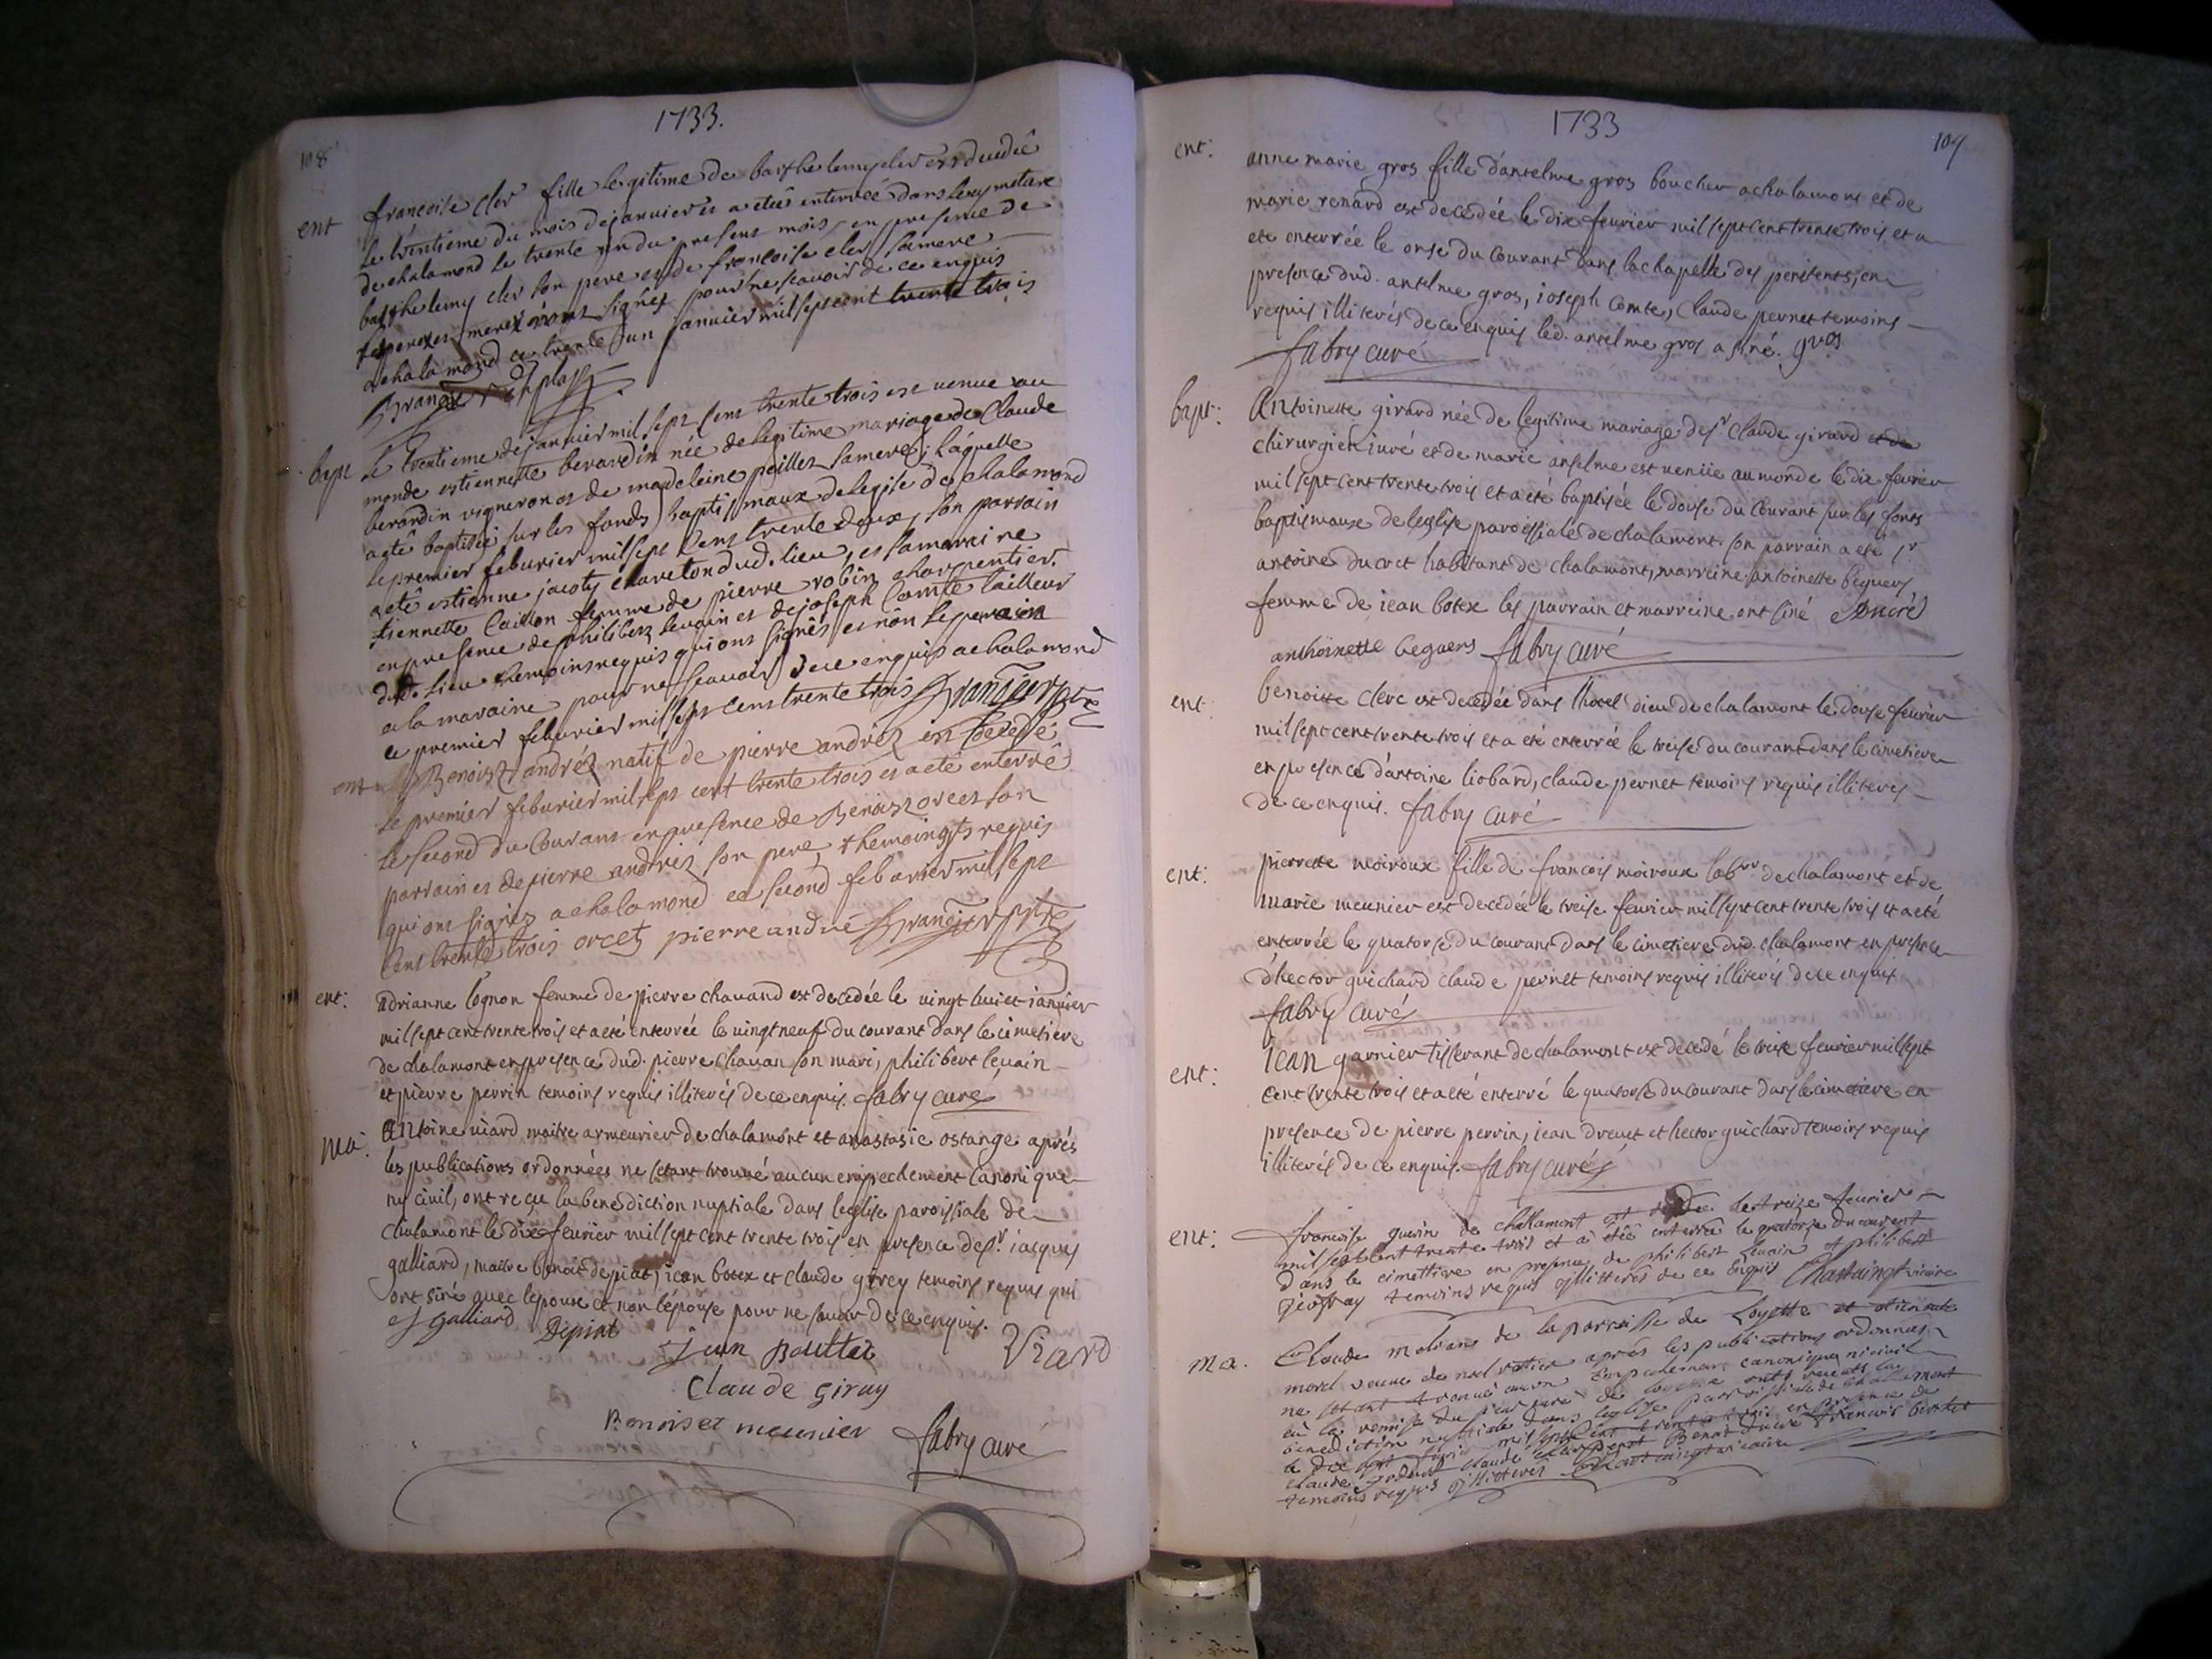 1733.
108
ent
françoise cler fille legitime de barthelemy cler est decedée
le trentieme du mois de janvier et a etée enterrée dans le cymetiere
de chalamond le trente un du present mois, en presence de
barthelemy cler son pere et de françoise cler sa mere
pour ne scavoir de ce enquis
a chalamond ce trente un janvier mil sept cent trente trois
bapt
le trentieme de janvier mil sept cens trente trois est venue au
monde estiennette berardin née de legitime mariage de Claude
berardin vigneron et de madeleine peillet sa mere, laquelle
a etê baptisée sur les fonds baptismaux de legise de chalamond
le premier feburier mil sept cens trente deux, son parrain
a etê estienne jacoty chareton dud. lieu, et sa maraine
tiennette Caillon femme de pierre robin charpentier.
en presence de philibert levain et de joseph Comte tailleur
dud. lieu themoins requis qui ont signés et non le parain
a la maraine pour ne scavoir de ce enquis a chalamond
ce premier feburier mil sept cens trente trois
ent
Benoist andréz natif de pierre andréz est decedé
le premier feburier mil sept cent trente trois et a eté enterré
le second du Courant en presence de Benoist orcet son
parrain et de pierre andriez son pere, themoings requis
qui ont signéz a chalamond ce second feburier mil sept
cens trente trois orcet pierre andrié
ent:
adrianne lognon femme de pierre chavand est decedée le vingt huict ianvier
mil sept cent trente trois et a eté enterrée le vingt neuf du courant dans le cimetiere
de chalamont en presence dud. pierre Chavan son mari, philibert levain
et pierre perrin temoins requis illiterés de ce enquis. fabry curé
Ma:
Antoine viard maitre armeurier de chalamont et anastasie ostange aprés
les publications ordonnées ne setant trouvé aucun empechement canonique
ny civil, ont reçu la benediction nuptiale dans leglise paroissiale de
chalamont le dix feurier mil sept cent trente trois en presence de sr. iacques
galliard, maitre benoit depiat, iean botex et claude girey temoins requis qui
ont siné avec lepoux et non l'épouse pour ne savoir de ce enquis.
J galliard Depiat
Jean Bouttex Viard
Claude giray
Benoiset meunier fabry curé
1733
109
ent:
anne marie gros fille d'antelme gros boucher a chalamont et de
marie renard est decedée le dix feurier mil sept cent trente trois et a
eté enterrée le onse du courant dans la chapelle des penitents, en
presence dud. antelme gros, ioseph comte, Claude pernet temoins
requis illiterés de ce enquis led. antelme gros a siné. gros
fabry curé
bapt:
Antoinette girard née de legitime mariage de sr claude girard et de
chirurgien iuré et de marie anselme est veniie au monde le dix feurier
mil sept cent trente trois et a eté baptisée le douse du courant sur les fonts
baptismaux de leglise paroissiale de chalamont. son parrain a eté sr
antoine ducret habitant de chalamont, marreine antoinette beguers
femme de iean botex les parrain et marreine ont siné Ducré
anthoinette beguers fabry curé
ent:
benoite clerc est decedée dans lhotel dieu de chalamont le douse feurier
mil sept cent trente trois et a eté enterrée le treise du courant dans le cimetiere
en presence d'antoine liobard, claude pernet temoins requis illiterés
de ce enquis. fabry curé
ent:
pierrette moiroux fille de francois moiroux labr de chalamont et de
marie meunier est decedée le treise feurier mil sept cent trente trois et a eté
enterrée le quatorse du courant dans le cimetiere dud. chalamont en presence
d'hector guichard claude pernet temoins requis illiterés de ce enquis
fabry curé
ent:
iean garnier tisserant de chalamont est decedé le treise feurier mil sept
cent trente trois et a eté enterré le quatorse du courant dans le cimetiere en
presence de pierre perrin, iean drevet et hector guichard temoins requis
illiterés de ce enquis. fabry curé
ent:
francoise guerin de challamont est decedée le treize feurier
mil sept cent trente trois et a etéé enterrée le quatorze du courent
dans le cimettiere en presence de philibert Levain et philibert
temoins requis illitteres de ce enquis Chastaingt vicaire
Ma.
Claude de la parroisse de Loyette et etiennete
morel veuve de noel ratier aprés les publications ordonnées
ne setant trouvé aucun empechement canonique ni civil
vu la remise du sieur curé de loyette ont receu la
benediction nuptiale dans leglise parroissiale de challamont
le dix sept feurier mil sept cent trente trois en presence de
claude claude Benoit francois
temoins requis illitteres Chastaingt vicaire